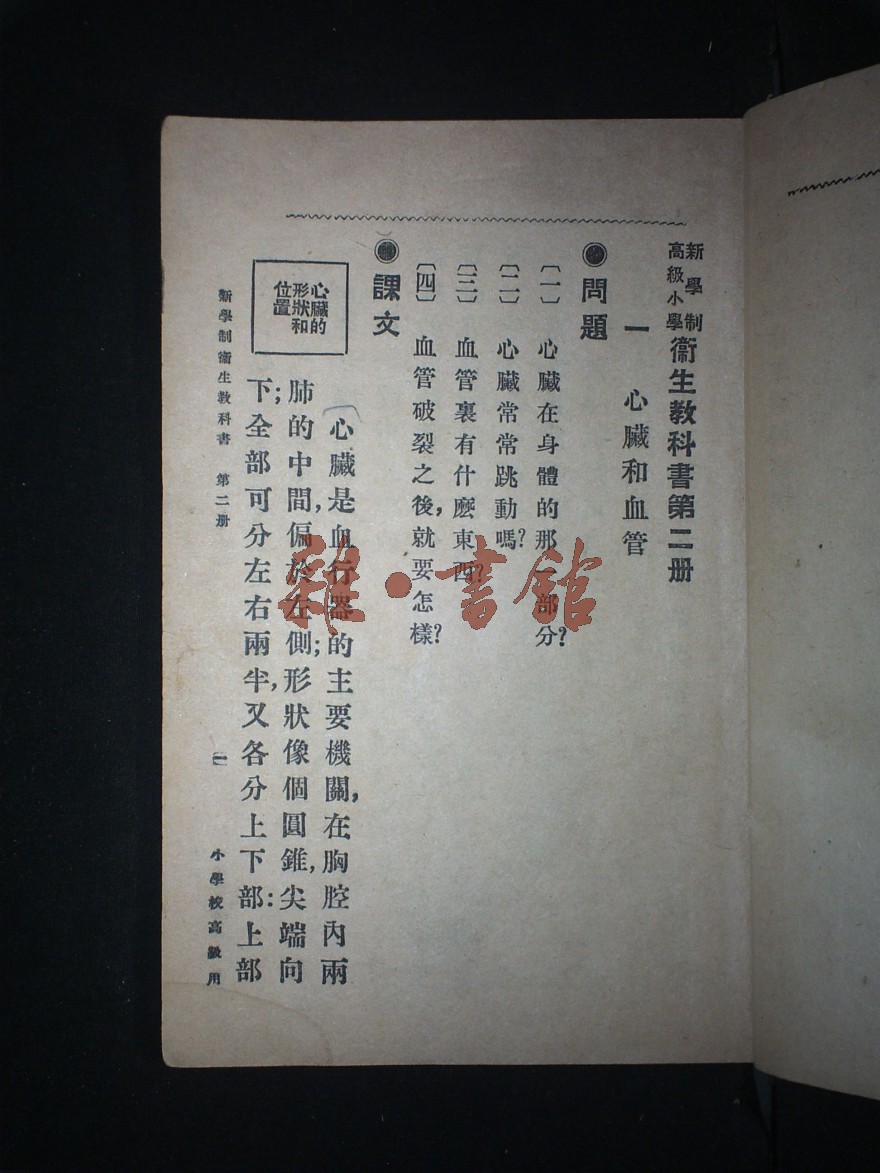 新學制
高級小學
衞生教科書第二册
一 心臟和血管
問題
〔一〕 心臟在身體的那一部分?
〔二〕 心臟常常跳動嗎?
〔三〕 血管裏有什麽東西?
〔四〕 血管破裂之後,就要怎樣?
課文
心臟的
形狀和
位置
心臟是血行器的主要機關,在胸腔內兩
肺的中間,偏於左側;形狀像個圓錐,尖端向
下;全部可分左右兩半,又各分上下部:上部
新學制衞生教科書 第二册 一 小學校高級用
雜·書館